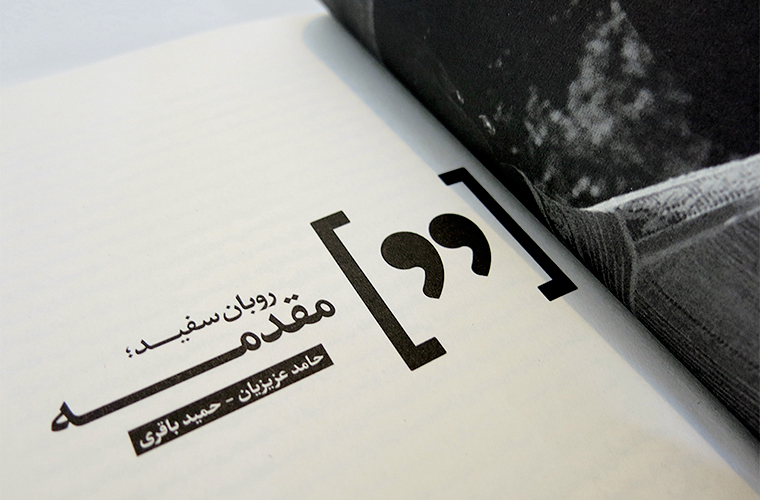 [❟❟]
روبان سفید؛
مقدمه
حامد عزیزیان - حمید باقری